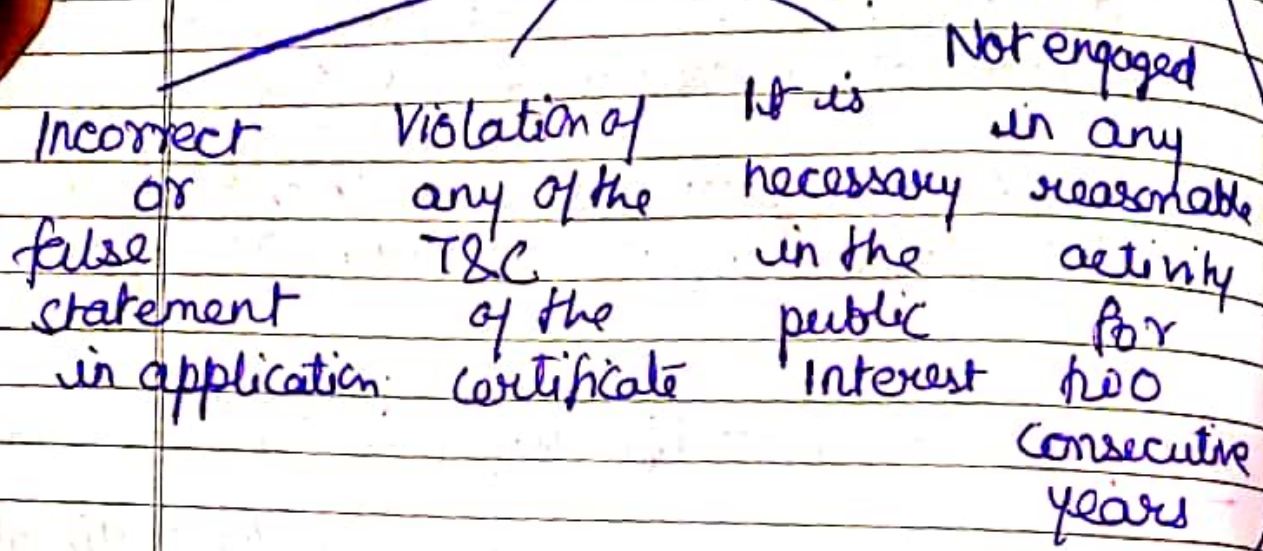 Incorrect
or
false
statement
in application
Violation of
any of the
T&C
of the
certificate
It is
necessary
in the
public
Interest
Not engaged
in any
reasonable
activity
for
two
consecutive
years